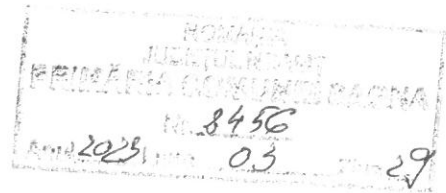 ROMÂNIA
JUDEȚUL NEAMȚ
PRIMĂRIA COMUNEI SAGNA
Nr. 8456
Anul 2023 Luna 03 Ziua 29